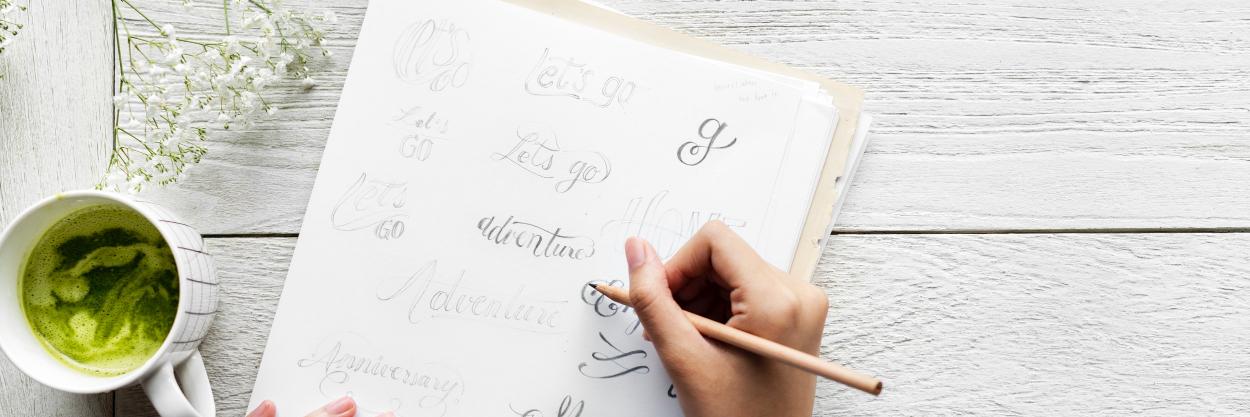 let's
go
Let's go
Let's
GO
g
Let's go
Let's
GO
adventure
HOME
Adventure
Anniversary